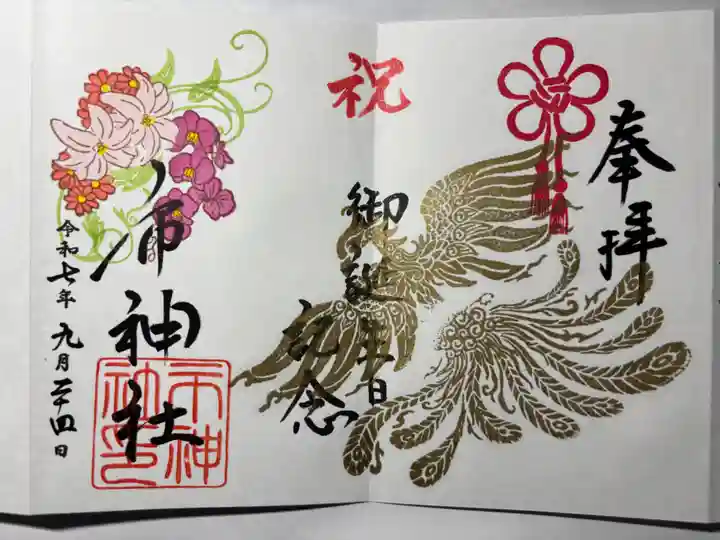 奉拝
祝
御誕生日
記念
市神社
令和七年九月二十四日